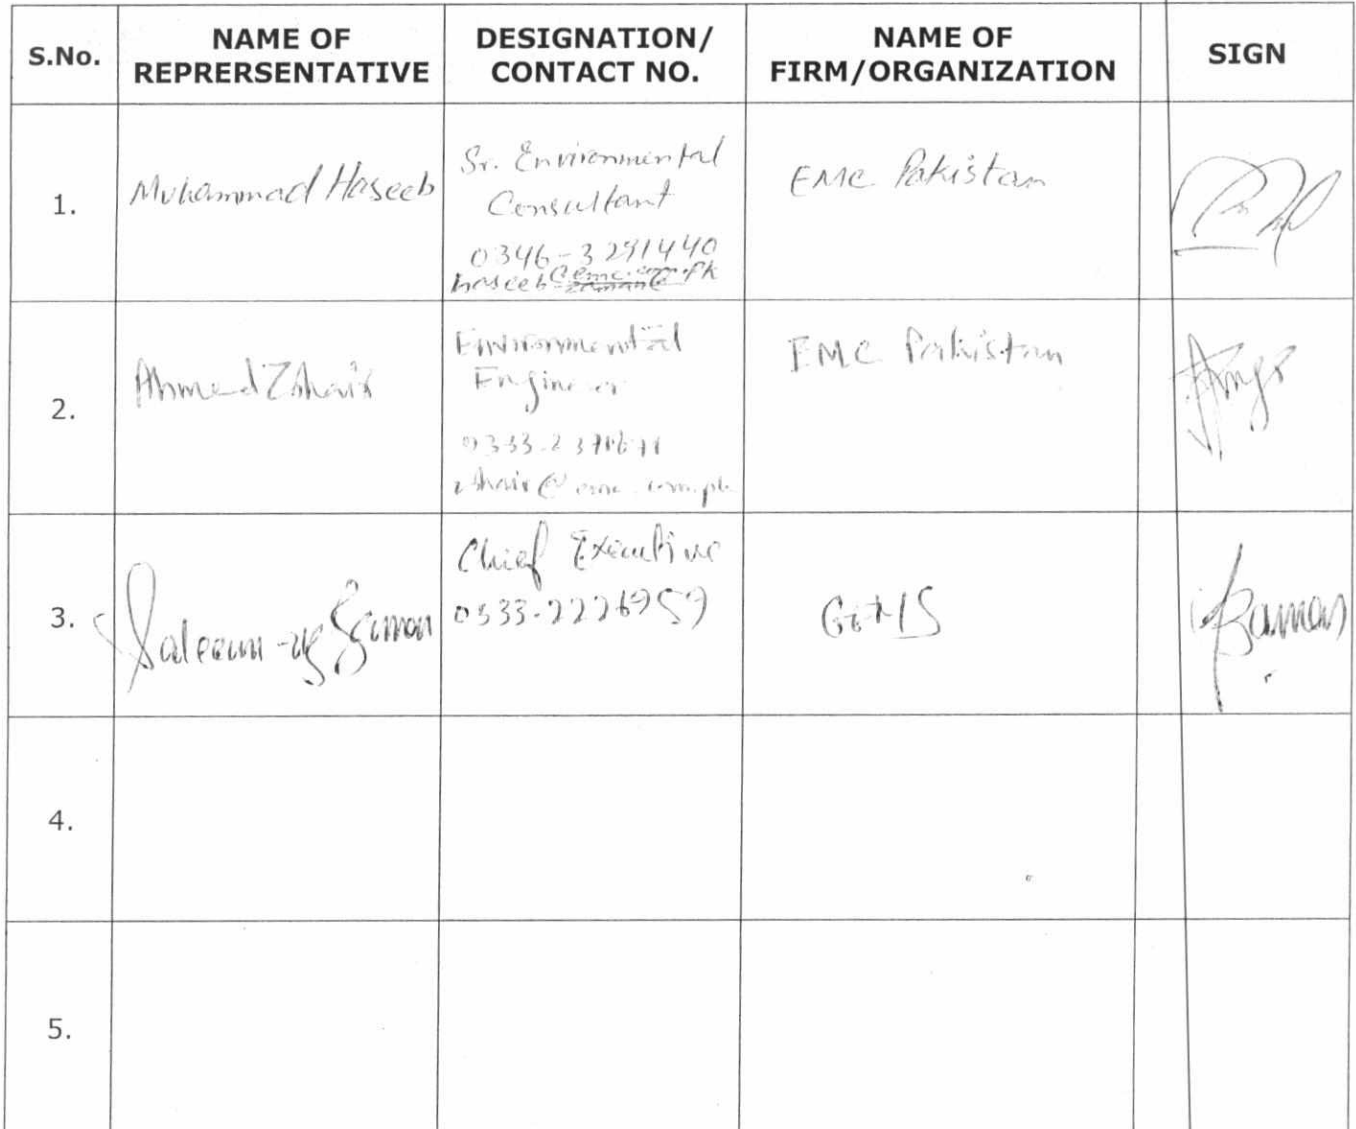 S.No.
NAME OF
REPRERSENTATIVE
DESIGNATION/
CONTACT NO.
NAME OF
FIRM/ORGANIZATION
SIGN
1.
Muhammad Haseeb
Sr. Environmental
Consultant
0346-3291440
haseeb@emc.com.pk
EMC Pakistan
2.
Ahmed Zohair
Environmental
Engineer
EMC Pakistan
3.
Saleem-uz Zaman
Chief Executive
0333-2226959
Zaman
4.
5.